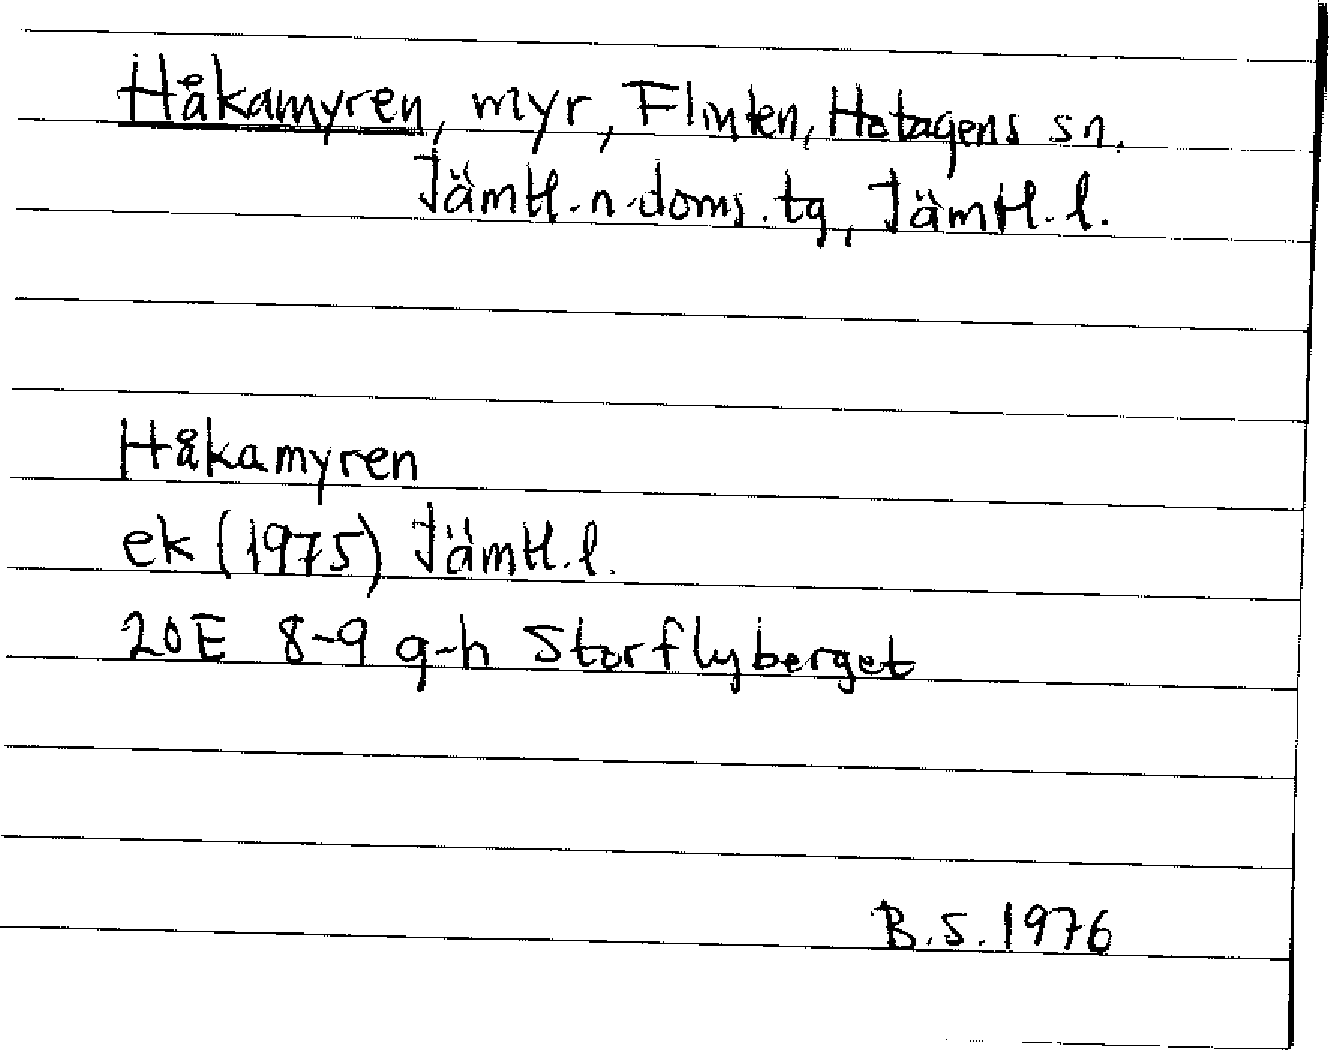 Håkamyren, myr, Flinten, Hotagens sn.
Jämtl. n. doms. tg, Jämtl. l.
Håkamyren
ek (1975) Jämtl. l.
20E 8-9 g-h Storflyberget
B.S. 1976